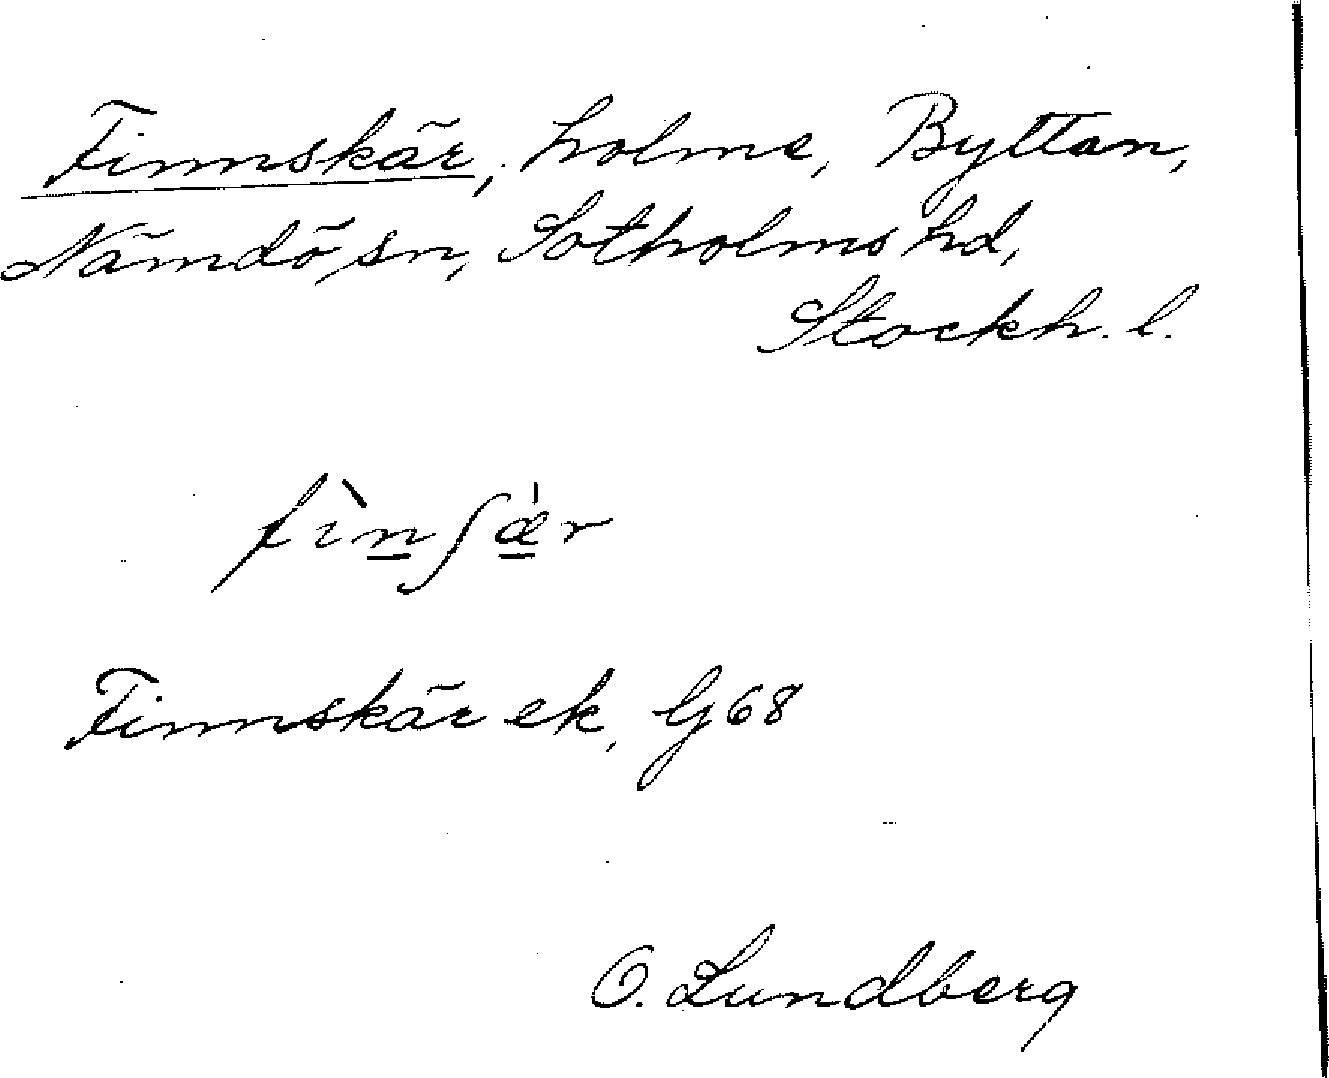 Finnskär, holme, Byttan,
Nämdö sn, Sotholms hd,
Stockh. l.
fìnʃæ̀r
Finnskär ek, G 68
O. Lundberg